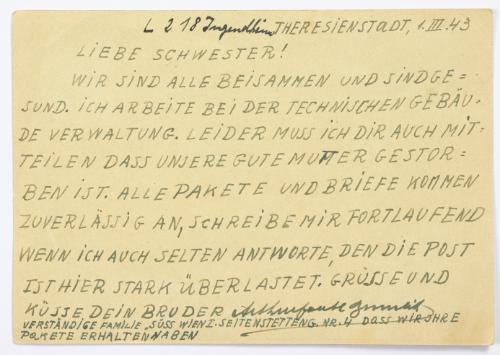 L 218 Jugendheim THERESIENSTADT, 1. III. 43
LIEBE SCHWESTER!
WIR SIND ALLE BEISAMMEN UND SIND GE=
SUND. ICH ARBEITE BEI DER TECHNISCHEN GEBÄU=
DE VERWALTUNG. LEIDER MUSS ICH DIR AUCH MIT=
TEILEN DASS UNSERE GUTE MUTTER GESTOR=
BEN IST. ALLE PAKETE UND BRIEFE KOMMEN
ZUVERLÄSSIG AN, SCHREIBE MIR FORTLAUFEND
WENN ICH AUCH SELTEN ANTWORTE, DEN DIE POST
IST HIER STARK ÜBERLASTET. GRÜSSE UND
KÜSSE DEIN BRUDER
VERSTÄNDIGE FAMILIE, SÜSS WIEN I. SEITENSTETTENG. NR. 4 DASS WIR IHRE
PAKETE ERHALTEN HABEN